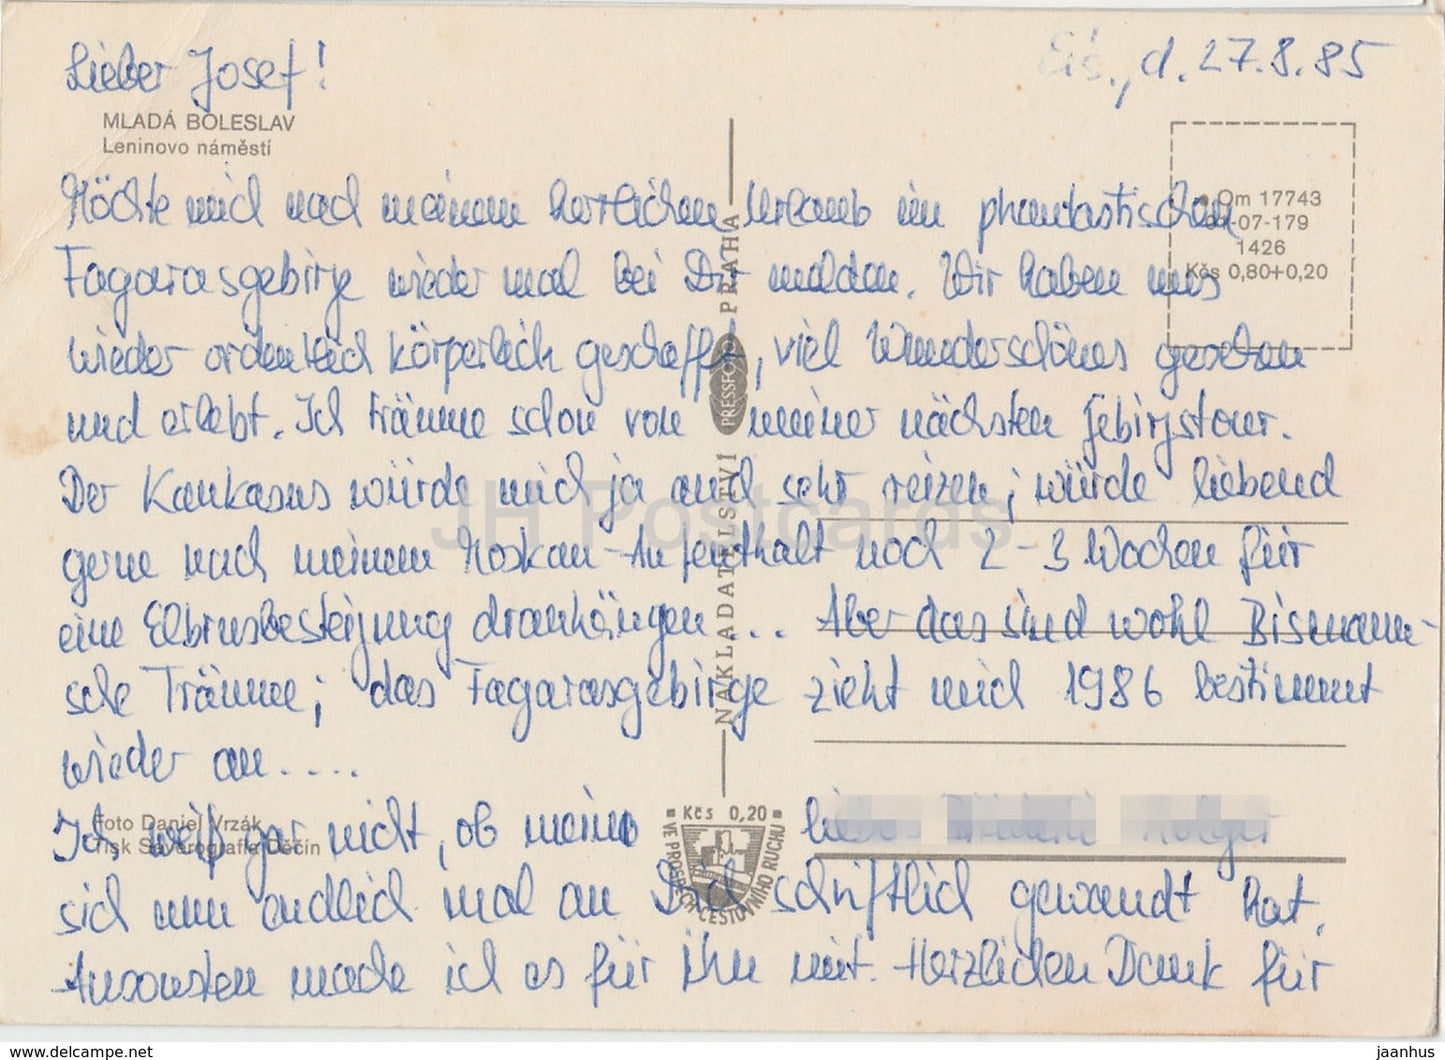 Lieber Josef!
Eis., d. 27.8.85
MLADÁ BOLESLAV
Leninovo náměstí
Om 17743
01-07-179
1426
Kčs 0,80+0,20
Möchte mich nach meinem herrlichen Urlaub im phantastischen
Fagarasgebirge wieder mal bei Dir melden. Wir haben uns
wieder ordentlich körperlich geschafft, viel Wunderschönes gesehen
und erlebt. Ich träume schon von meiner nächsten Gebirgstour.
Der Kaukasus würde mich ja auch sehr reizen; würde liebend
gerne nach meinem Moskau-Aufenthalt noch 2-3 Wochen für
eine Elbrusbesteigung dranhängen... Aber das sind wohl Bismann-
sche Träume; das Fagarasgebirge zieht mich 1986 bestimmt
wieder an....
Ich weiß gar nicht, ob meine
sich nun endlich mal an Dich schriftlich gewandt hat.
Ansonsten mache ich es für ihn mit. Herzlichen Dank für
NAKLADATELSTVÍ PRESSFOTO PRAHA
Foto Daniel Vrzák
Tisk Severografia Děčín
Kčs 0,20
VE PROSPĚCH CESTOVNÍHO RUCHU
JH Postcards
www.delcampe.net
jaanhus